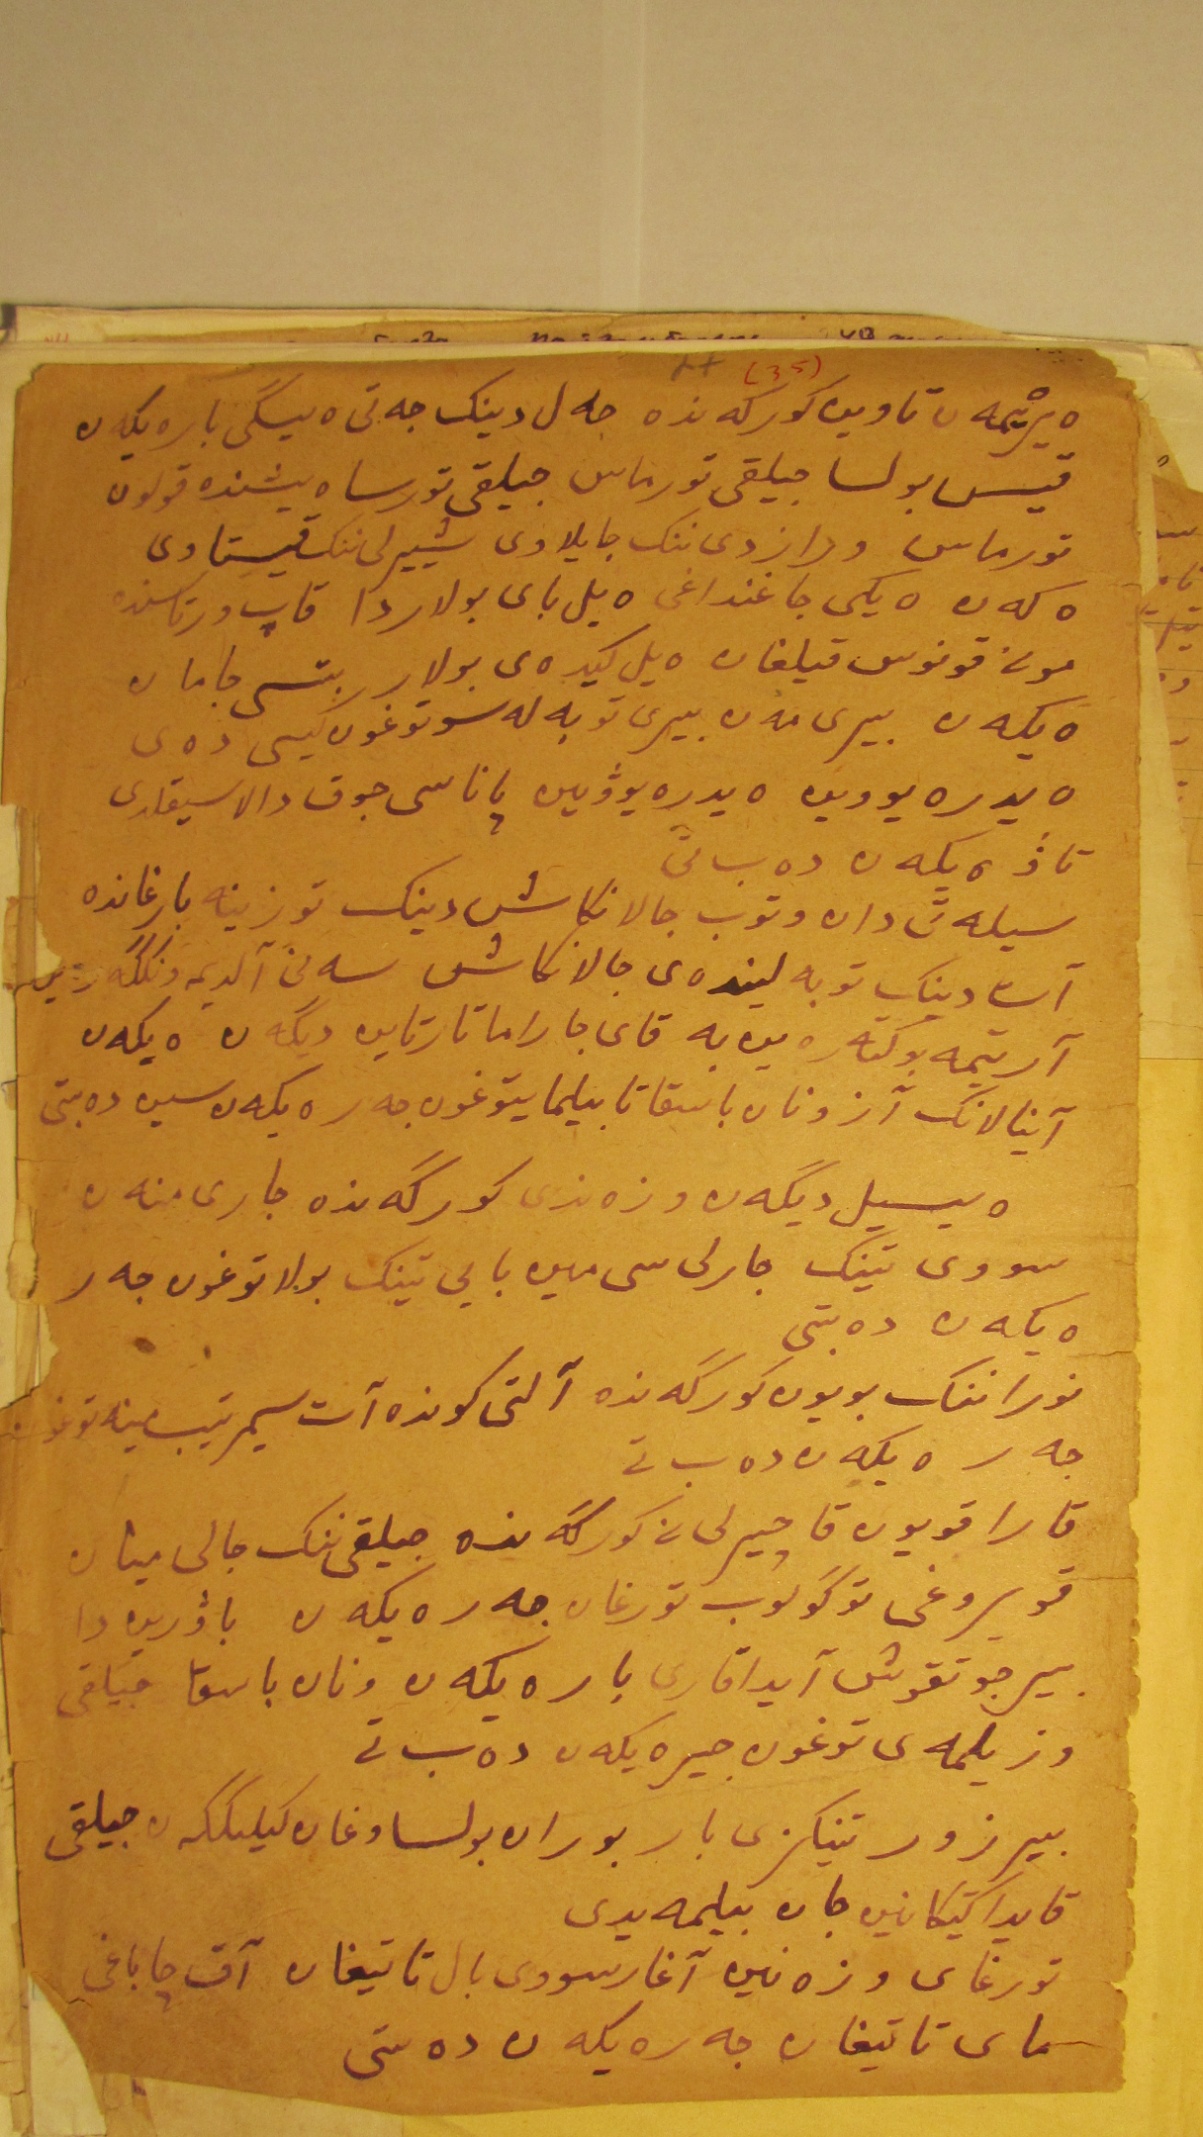 (35)
ه يرٸيمه ن تاوين كورگه نده جه ل دينك جه تى ه يسگى بار ه يكه ن
قيس بولسا جيلقى تورماس جيلقى تورسا ه يشنده قولون
تورماس و رازدى ننك جايلاوى شييرلى ننك قيستاوى
ه كه ن ه يكى جاغنداغى ه يل باى بولار دا قاپ ورتاسنده
مونى قونوس قيلغان ه يل كيده ى بولار ربتسى جامان
ه يكه ن بيرى مه ن بيرى توبه له سوتوغون كيسى ده ى
ه يدره يووين ه يدره يوۋين پاناسى جوق دالا سيقلدى
تاۋ ه يكه ن ده ب تى
سيله تى دان وتوب جالانكاش دينك توزينه بارغانده
آستا دينك توبه لينده ى جالانكاش سه نى آلديمه ونگگه رتين
آرتيمه بوكته ره ين به قاى جاراما تارتاين ديگه ن ه يكه ن
آينالانك آزونان باسقا تابيلمايتوغون جه ر ه يكه ن سين ده بتى
ه يسيل ديگه ن وزه ندى كورگه نده جارى منه ن
سووى تينك جارلى سى مين بايى تينك بولاتوغون جه ر
ه يكه ن ده بتى
نورا ننك بويون كورگه نده آلتى كونده آت سيمرتيب مينه توغون
جه ر ه يكه ن ده ب تى
قارا قويون قاچيرلى نى كورگه نده جيلقى ننك جالى مينان
قويروغى توگولوب تورغان جه ر ه يكه ن باۋرين دا
بير جوتقوش آيداقارى بار ه يكه ن ونان باسقا جيلقى
وزيلمه ى توغون جير ه يكه ن ده ب تى
بير زور تينكزى بار بوران بولسا وغان كيليگگه ن جيلقى
قايدا كيتكانين جان بيلمه يدى
تورغاى وزه نين آغارسووى بال تاتيغان آق چاباغى
ماى تاتيغان جه ر ه يكه ن ده ستى